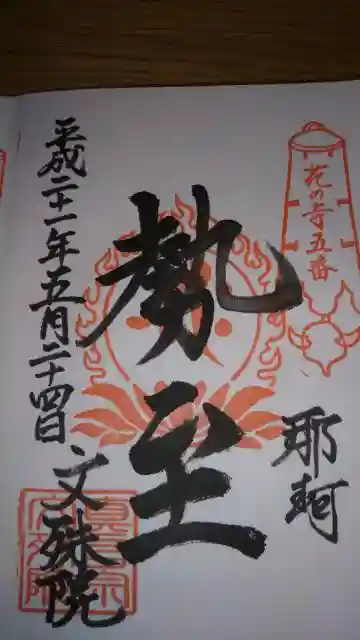 花の寺五番
那珂
勢至
平成二十一年五月二十四日
文殊院